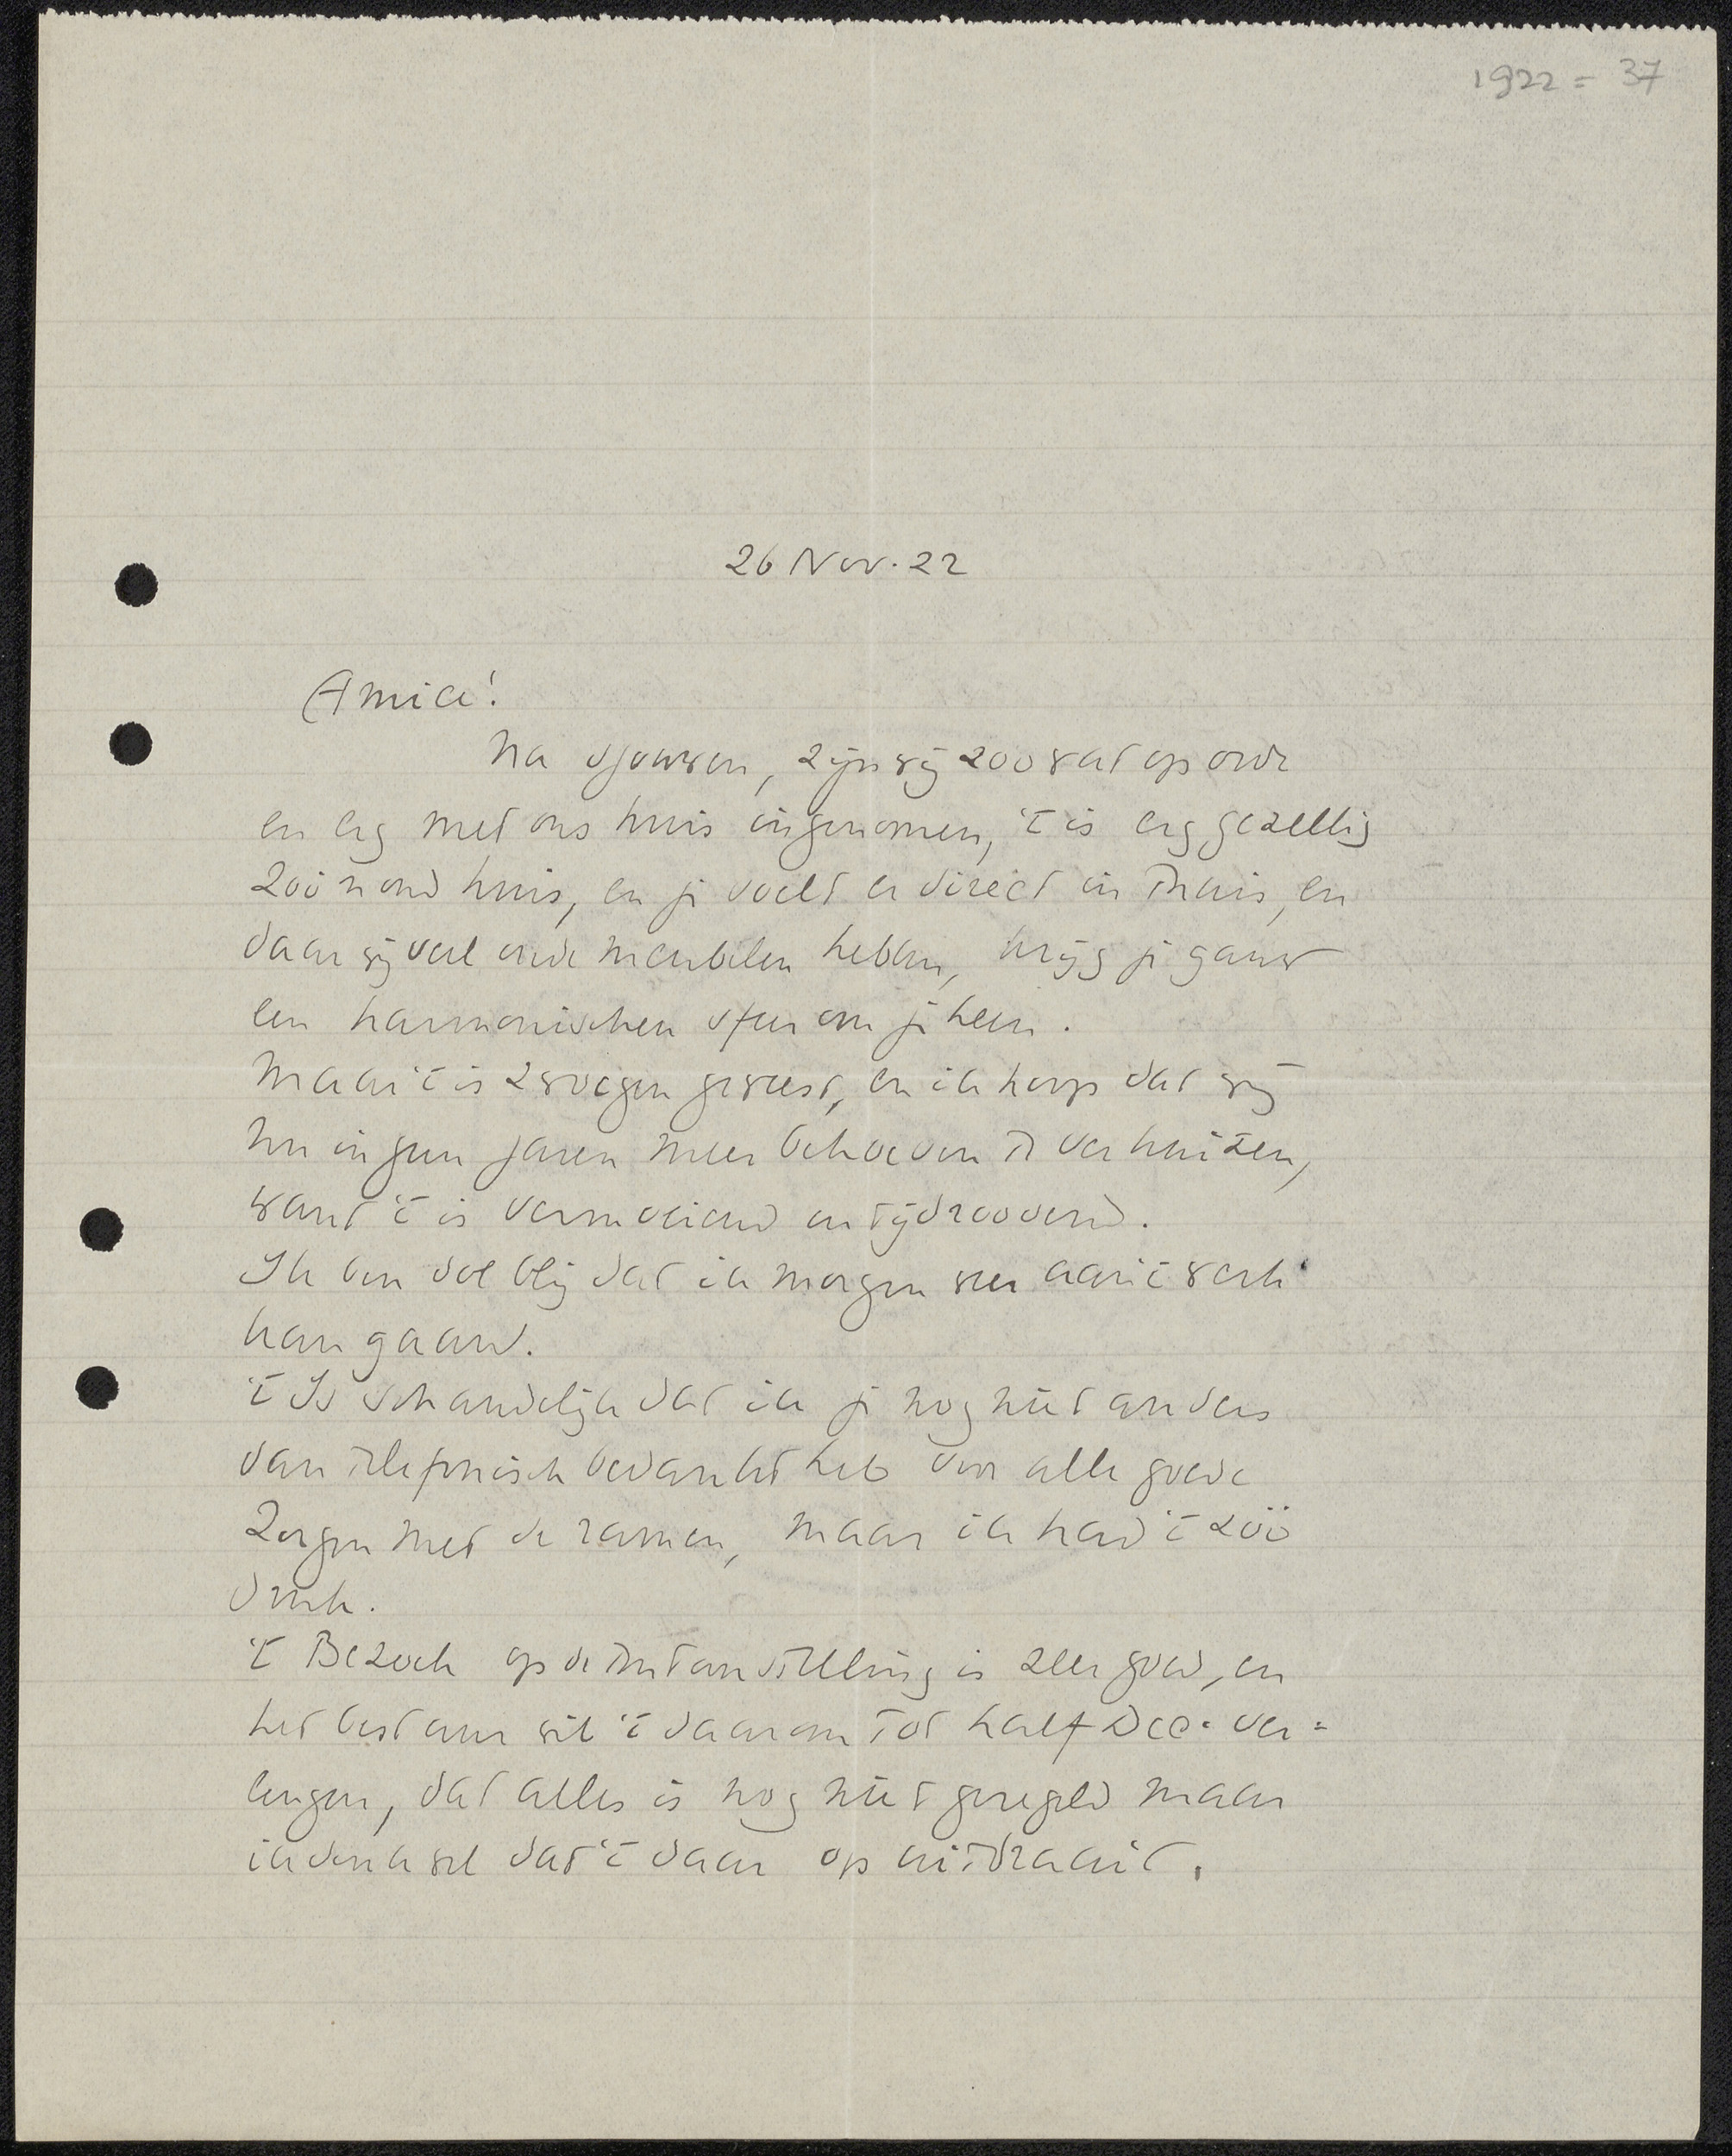 1922 = 37
26 Nov. 22
Amice!
Na sjouwen, zijn wij zoo wat op orde
en erg met ons huis ingenomen, 't is erg gezellig
zoo'n oud huis, en je voelt er direct in thuis, en
daar wij veel oude meubelen hebben, krijg je gauw
een harmonischen sfeer om je heen.
Maar 't is zwoegen geweest, en ik hoop dat wij
nu in geen jaren meer behoeven te verhuizen,
want 't is vermoeiend en tijdroovend.
Ik ben dol blij dat ik morgen weer aan 't werk
kan gaan.
't Is schandelijk dat ik je nog niet anders
dan telefonisch bedankt heb voor alle goede
zorgen met de ramen, maar ik had 't zóó
druk.
't Bezoek op de tentoonstelling is zeer goed, en
het bestuur wil 't daarom tot half Dec. ver=
lengen, dat alles is nog niet geregeld maar
ik denk wel dat 't daar op uitdraait.